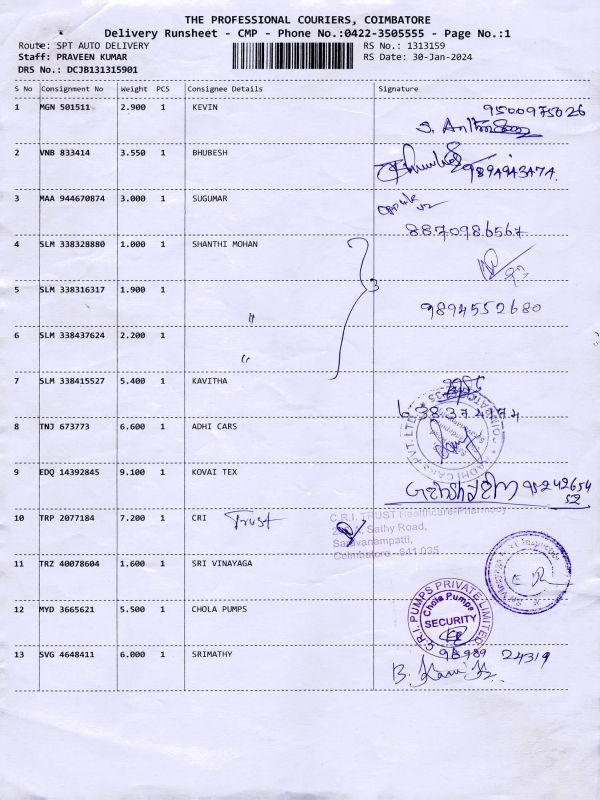 THE PROFESSIONAL COURIERS, COIMBATORE
Delivery Runsheet - CMP - Phone No.:0422-3505555 - Page No.:1
Route: SPT AUTO DELIVERY RS No.: 1313159
Staff: PRAVEEN KUMAR RS Date: 30-Jan-2024
DRS No.: DCJB131315901
S No Consignment No Weight PCS Consignee Details Signature
1 MGN 501511 2.900 1 KEVIN 9500975026
2 VNB 833414 3.550 1 BHUBESH
3 MAA 944670874 3.000 1 SUGUMAR
8870986567
4 SLM 338328880 1.000 1 SHANTHI MOHAN
3
5 SLM 338316317 1.900 1 9894552680
"
6 SLM 338437624 2.200 1
"
7 SLM 338415527 5.400 1 KAVITHA
6383724174
8 TNJ 673773 6.600 1 ADHI CARS
9 EDQ 14392845 9.100 1 KOVAI TEX 95242654
52
10 TRP 2077184 7.200 1 CRI Trust
C.R.I. TRUST Healthcare-Pharmacy
Sathy Road,
Saravanampatti,
Coimbatore - 641 035
11 TRZ 40078604 1.600 1 SRI VINAYAGA
12 MYD 3665621 5.500 1 CHOLA PUMPS
C.R.I. PUMPS PRIVATE LIMITED
Chola Pumps
SECURITY
13 SVG 4648411 6.000 1 SRIMATHY 98989 24319